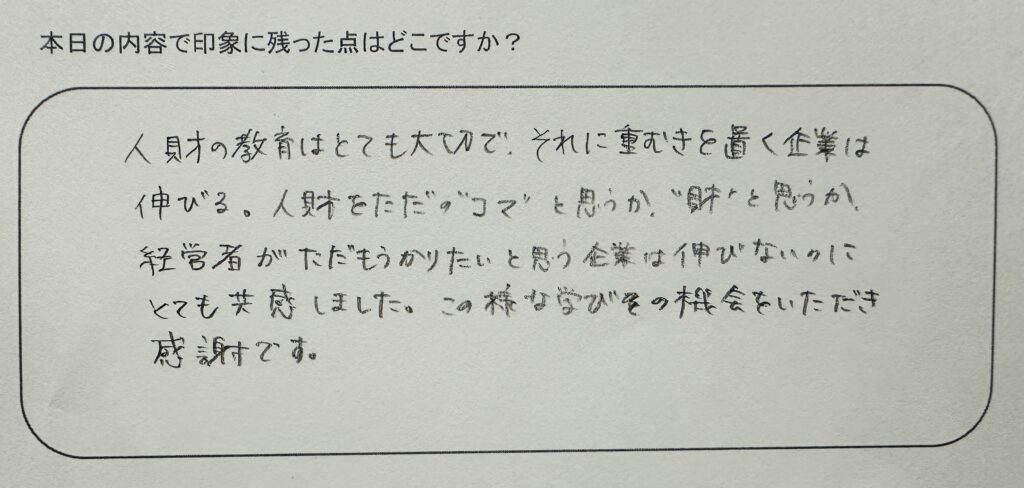 本日の内容で印象に残った点はどこですか？
人財の教育はとても大切で、それに重むきを置く企業は
伸びる。人財をただの"コマ"と思うか、"財"と思うか、
経営者がただもうかりたいと思う企業は伸びないのに
とても共感しました。この様な学びその機会をいただき
感謝です。